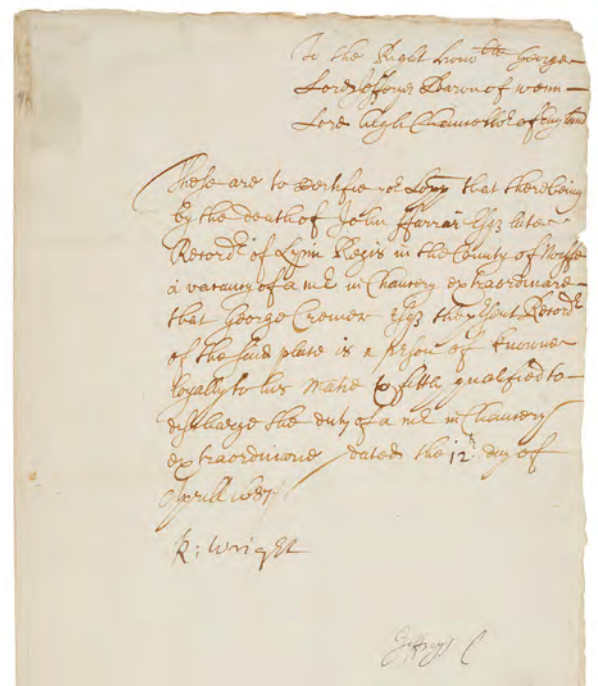 To the Right hono:ble George
Lord Jeffreys Baron of Wemm
Lord high Chancellor of England
These are to Certifie yor Lopp that there being
by the death of John ffarrar Esqz late
Recordr of Lynn Regis in the County of Norff
a vacancy of a mr in Chancery extraordinare
that George Cremer Esqz the psent Recordr
of the said place is a pson of knowne
loyalty to his Matie & fittly qualified to
discharge the duty of a mr in Chancery
extraordinare dated the 12th day of
Aprill 1687
R: Wright
Jeffreys C